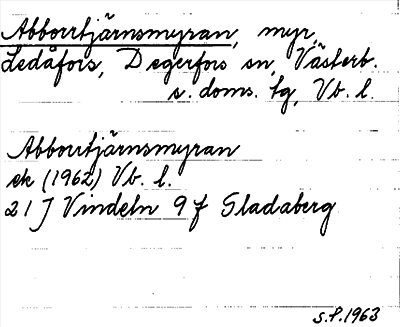 Abborrtjärnsmyran, myr,
Ledåfors, Degerfors sn, Västerb.
s. doms. tg, Vb. l.
Abborrtjärnsmyran
ek (1962) Vb. l.
21 J Vindeln 9 f Gladaberg
S.P. 1963